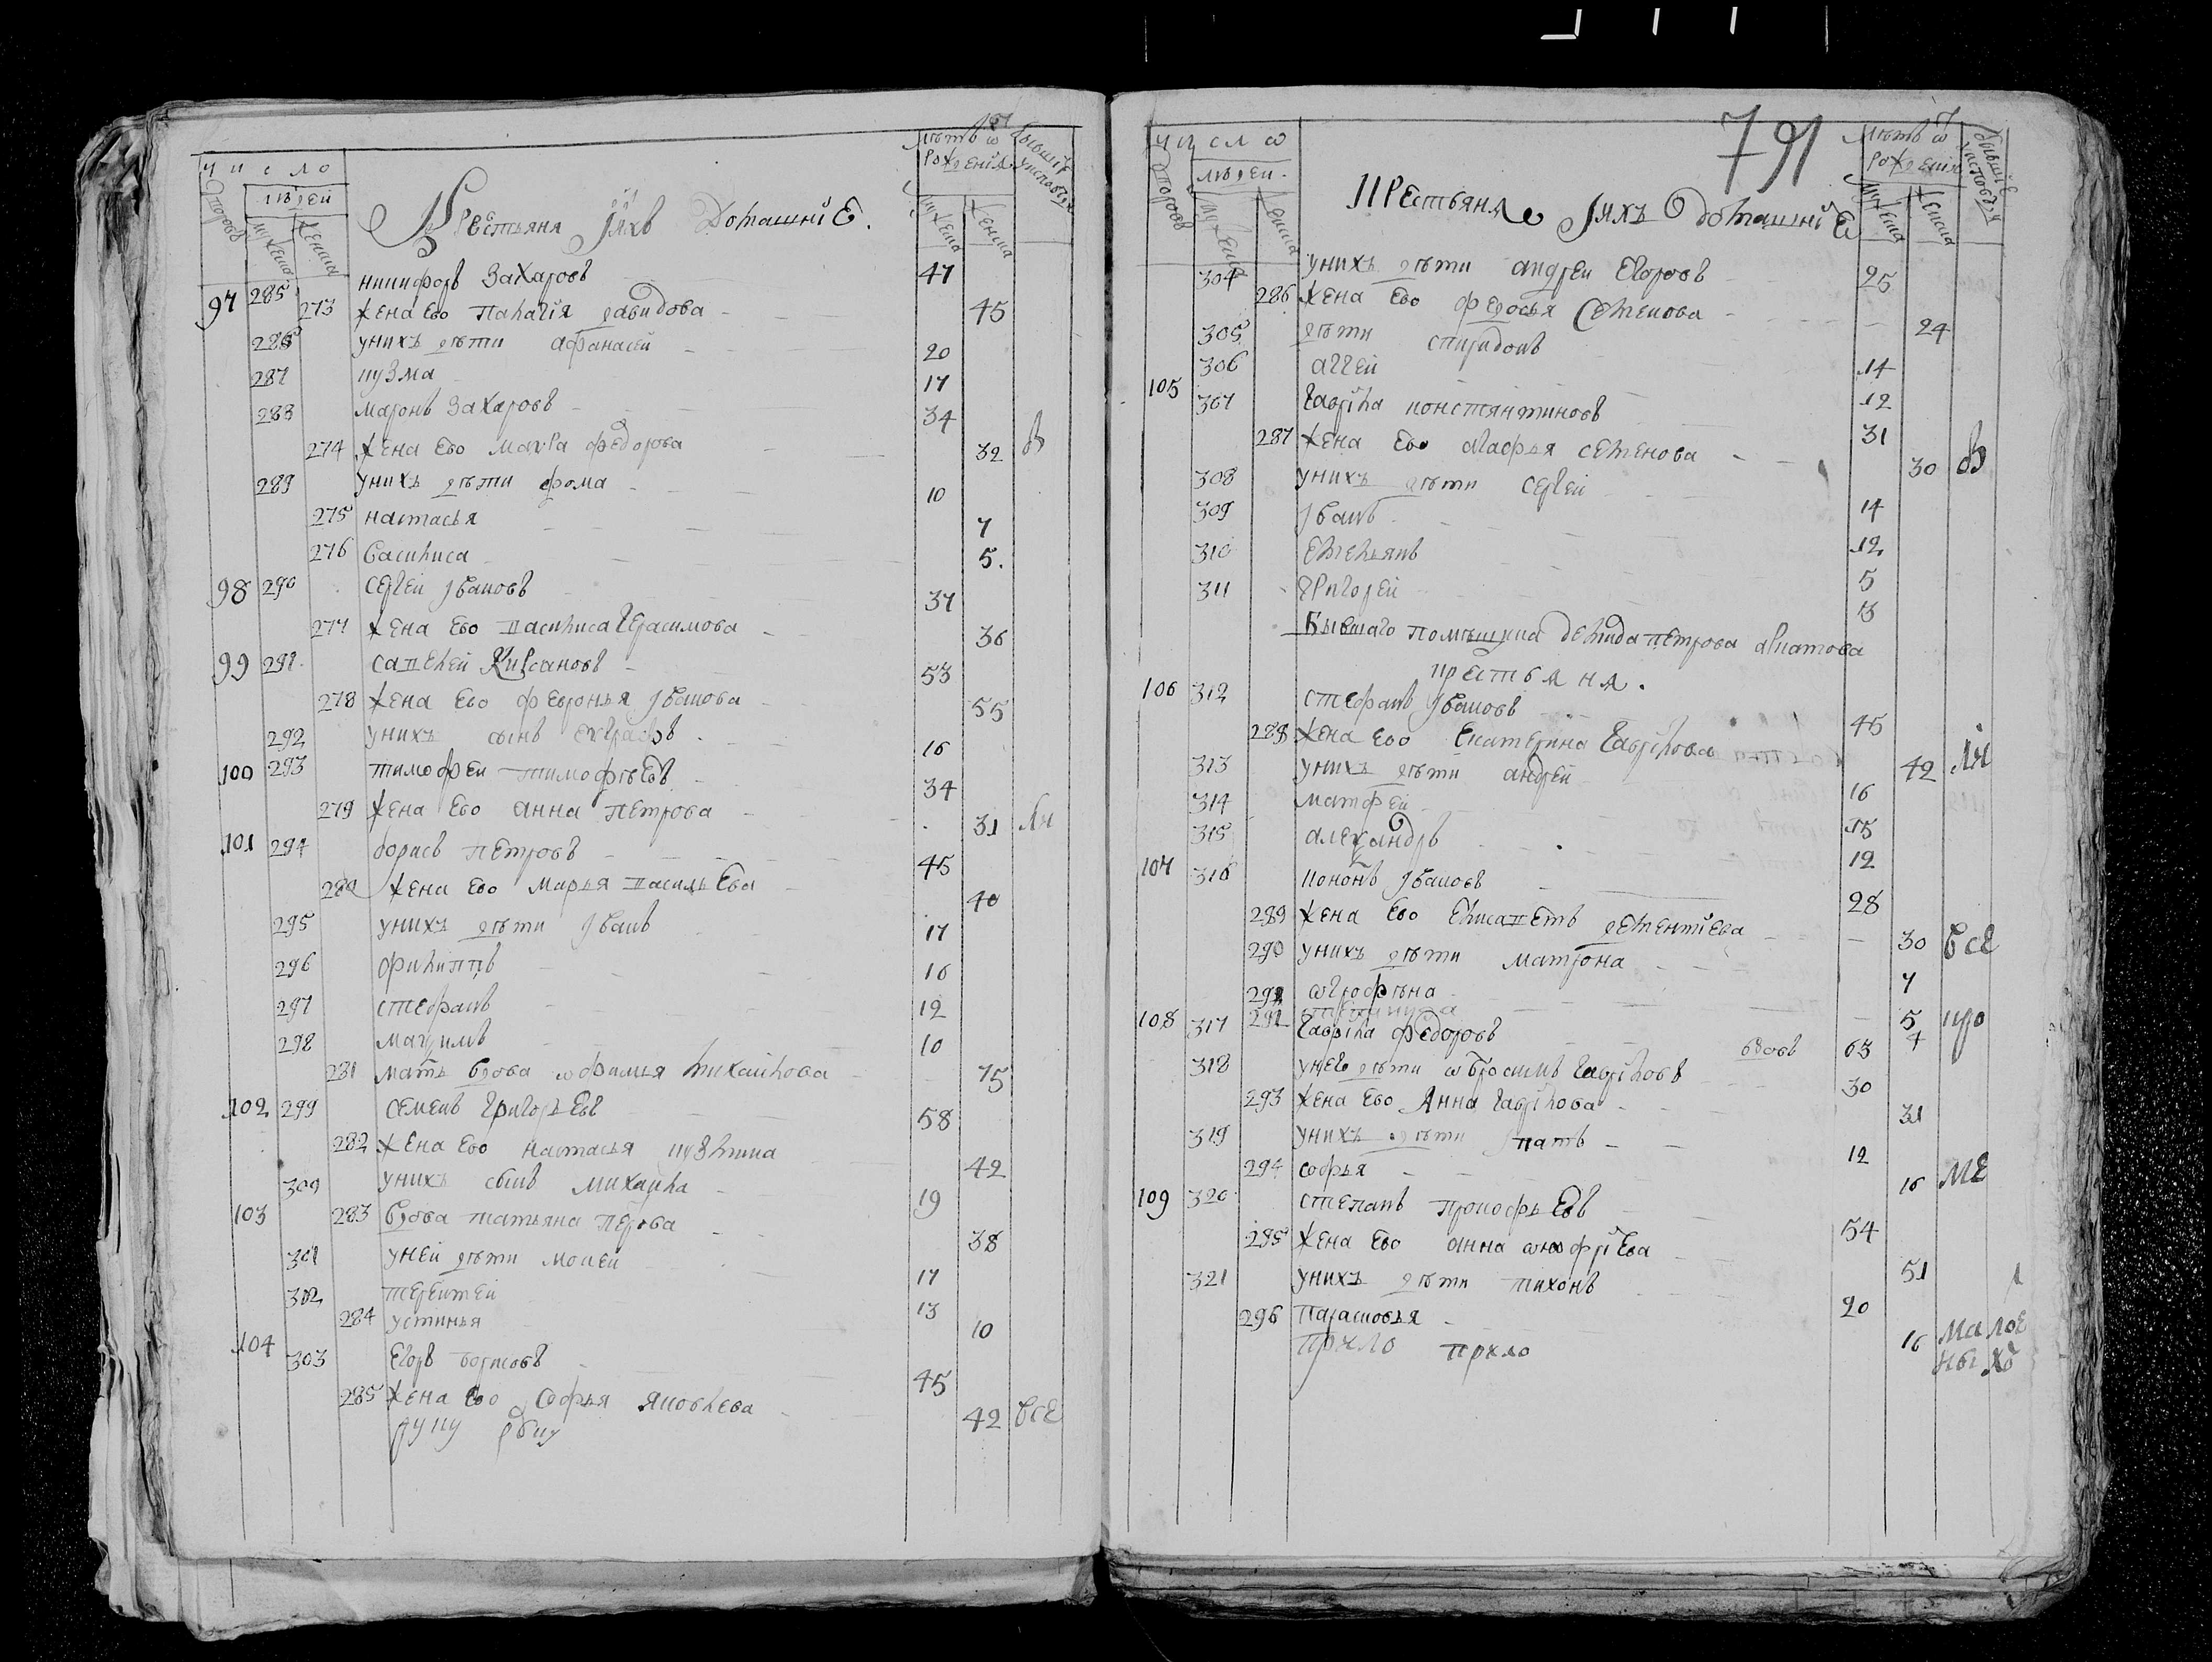 число
людей
дворовъ
мужеска
женска
Крестьяня Ихъ Домашние.
лѣтъ ѿ рождения
мужеска
женска
бывшие у исповеди
97 285 никифоръ Захаровъ 47
273 жена ево Палагия давидова 45
286 унихъ дѣти афанасей 20
287 кузма 17
288 маронъ Захаровъ 34
274 жена ево мавра федорова 32 в
289 унихъ дѣти фома 10
275 настасья 7
276 василиса 5.
98 290 сергей Ивановъ 37
277 жена ево василиса герасимова 36
99 291 савелей Кирсановъ 53
278 жена ево февронья Иванова 55
292 унихъ сынъ 16
100 293 тимофеи тимофѣевъ 34
279 жена ево анна петрова 31 ли
101 294 борисъ петровъ 45
280 жена ево марья василь ева 40
295 унихъ дѣти Иванъ 17
296 филиппъ 16
297 стефанъ 12
298 маѯимъ 10
281 мать вдова ѡфимья михаилова 75
102 299 семенъ григорьевъ 58
282 жена ево настасья кузмина 42
300 унихъ сынъ михаила 19
103 283 вдова татьяна 38
301 уней дѣти мокей 17
302 терентей 13
284 устинья 10
104 303 егоръ борисовъ 45
285 жена ево софья яковлева 42 все
руку
791
число
людеи
дворовъ
мужеска
женска
крестьяня Ихъ домашние
лѣтъ ѿ рождения
мужеска
женска
бывшие
304 унихъ дѣти андреи егоровъ 25
286 жена ево федосья семенова 24
305 дѣти спиридонъ 14
306 аггеи 12
105 307 гаврила констянтиновъ 31
287 жена ево агафья семенова 30 в
308 унихъ дѣти сергеи 14
309 Иванъ 12
310 емельянъ 5
311 григореи 13
Бывшаго помѣщика демида петрова
крестьяня.
106 312 стефанъ Ивановъ 45
288 жена ево екатерина гаврилова 42 ли
313 унихъ дѣти андреи 16
314 матфеи 15
315 алеѯандръ 12
107 316 кононъ Ивановъ 28
289 жена ево елисаветь дементиева 30 все
290 унихъ дѣти матрона 7
291 ѡгрофѣна 5 кро
292 4
108 317 гаврила федоровъ вдовъ 63
318 унего дѣти ѡбросимъ гавриловъ 30
293 жена ево Анна гаврилова 31
319 унихъ дѣти 12
294 софья 16 ме
109 320 степанъ прокофьевъ 54
295 жена ево анна 51
321 унихъ дѣти тихонъ 20
296 парасковья 16 малое
ныхъ